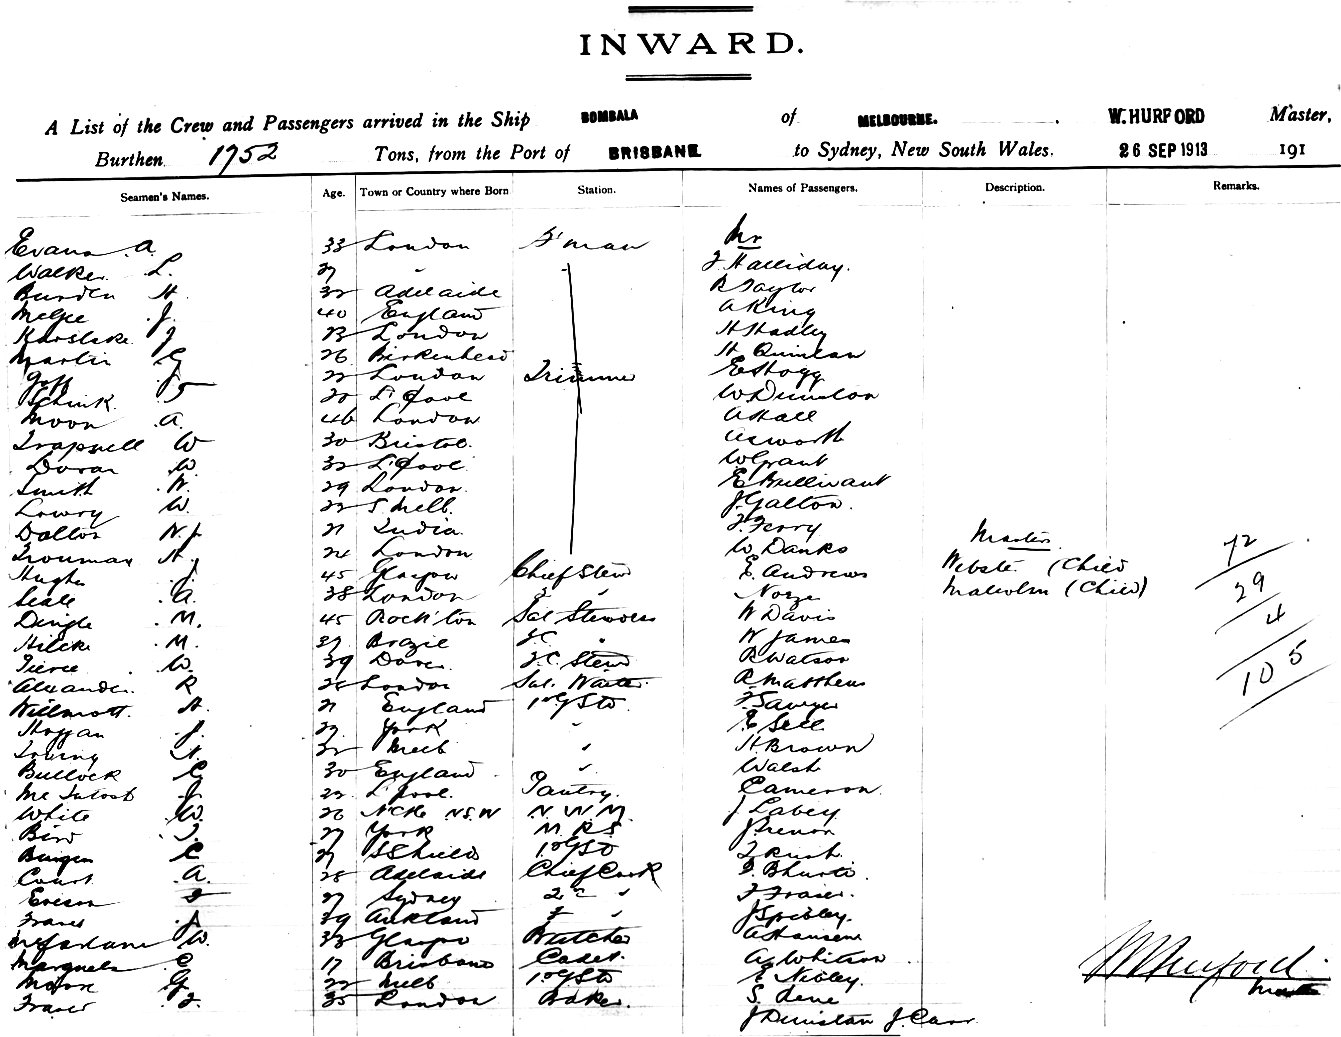 INWARD.
A List of the Crew and Passengers arrived in the Ship BOMBALA of MELBOURNE. W. HURFORD Master,
Burthen 1752 Tons, from the Port of BRISBANE to Sydney, New South Wales. 26 SEP 1913 191
Seamen's Names. Age. Town or Country where Born Station. Names of Passengers. Description. Remarks.
Evans A. 33 London F'man Mr
Walker L. 27 " " J Halliday.
Burden H. 32 Adelaide R Taylor
McGee J. 40 England A King
Karslake J 23 London H Hadley
Martin G 26 Birkenhead H Quinlan
Goff J 22 London Trimmer E Hogg
Schink 20 L'pool W Dunston
Moon A. 46 London A Hall
Trapnell W 30 Bristol. Acworth
Doran W. 32 L'pool W Grant
Smith W. 29 London. E Bullivant
Lowry W. 22 S Melb. J Galton.
Dalton N.J. 21 India. F. Ferry
Trouman H. 24 London W Danks Masters 72
Hughes J. 45 Glasgow Chief Stew E. Andrews Webster (Child 29
Seale A. 38 London 2 " Noyge Malcolm (Child) 4
Dingle M. 45 Rock'ton Sal Stewdess W Davis
Hilcke M. 37 Brazil F.C. " W James 105
Pierce W. 39 Dover F.C. Stew R Watson
Alexander R 26 London Sal. Waiter. R Matthews
Willmott. A. 21 England 1st G S to F. Sawyer
Hoggan J. 27. York " E Sell
Loring N. 32 Melb " H Brown
Bullock C 30 England " Walsh
McIntosh J. 22 L'pool. Pantry. Cameron
White W. 26 N'Cle NSW N. W M. J Labey
Bird 27 York M R S. J Prenon
Bingen C 27 S Shields 1st G S to J Rush.
Court A. 28 Adelaide Chief Cook
Ericson F 27 Sydney 2nd " J Fraser.
Fraser A 39 Aukland 3 " J Spibley.
McFarlane W. 33 Glasgow Butcher A Hansen
Marquels C 17 Brisbane Cadet. A Whitson
Moon G 22 Melb 1st G S to E Nibley. W Hurford.
Fraser J. 35 London Baker. S. Dene Master
J Dunstan J. Carr